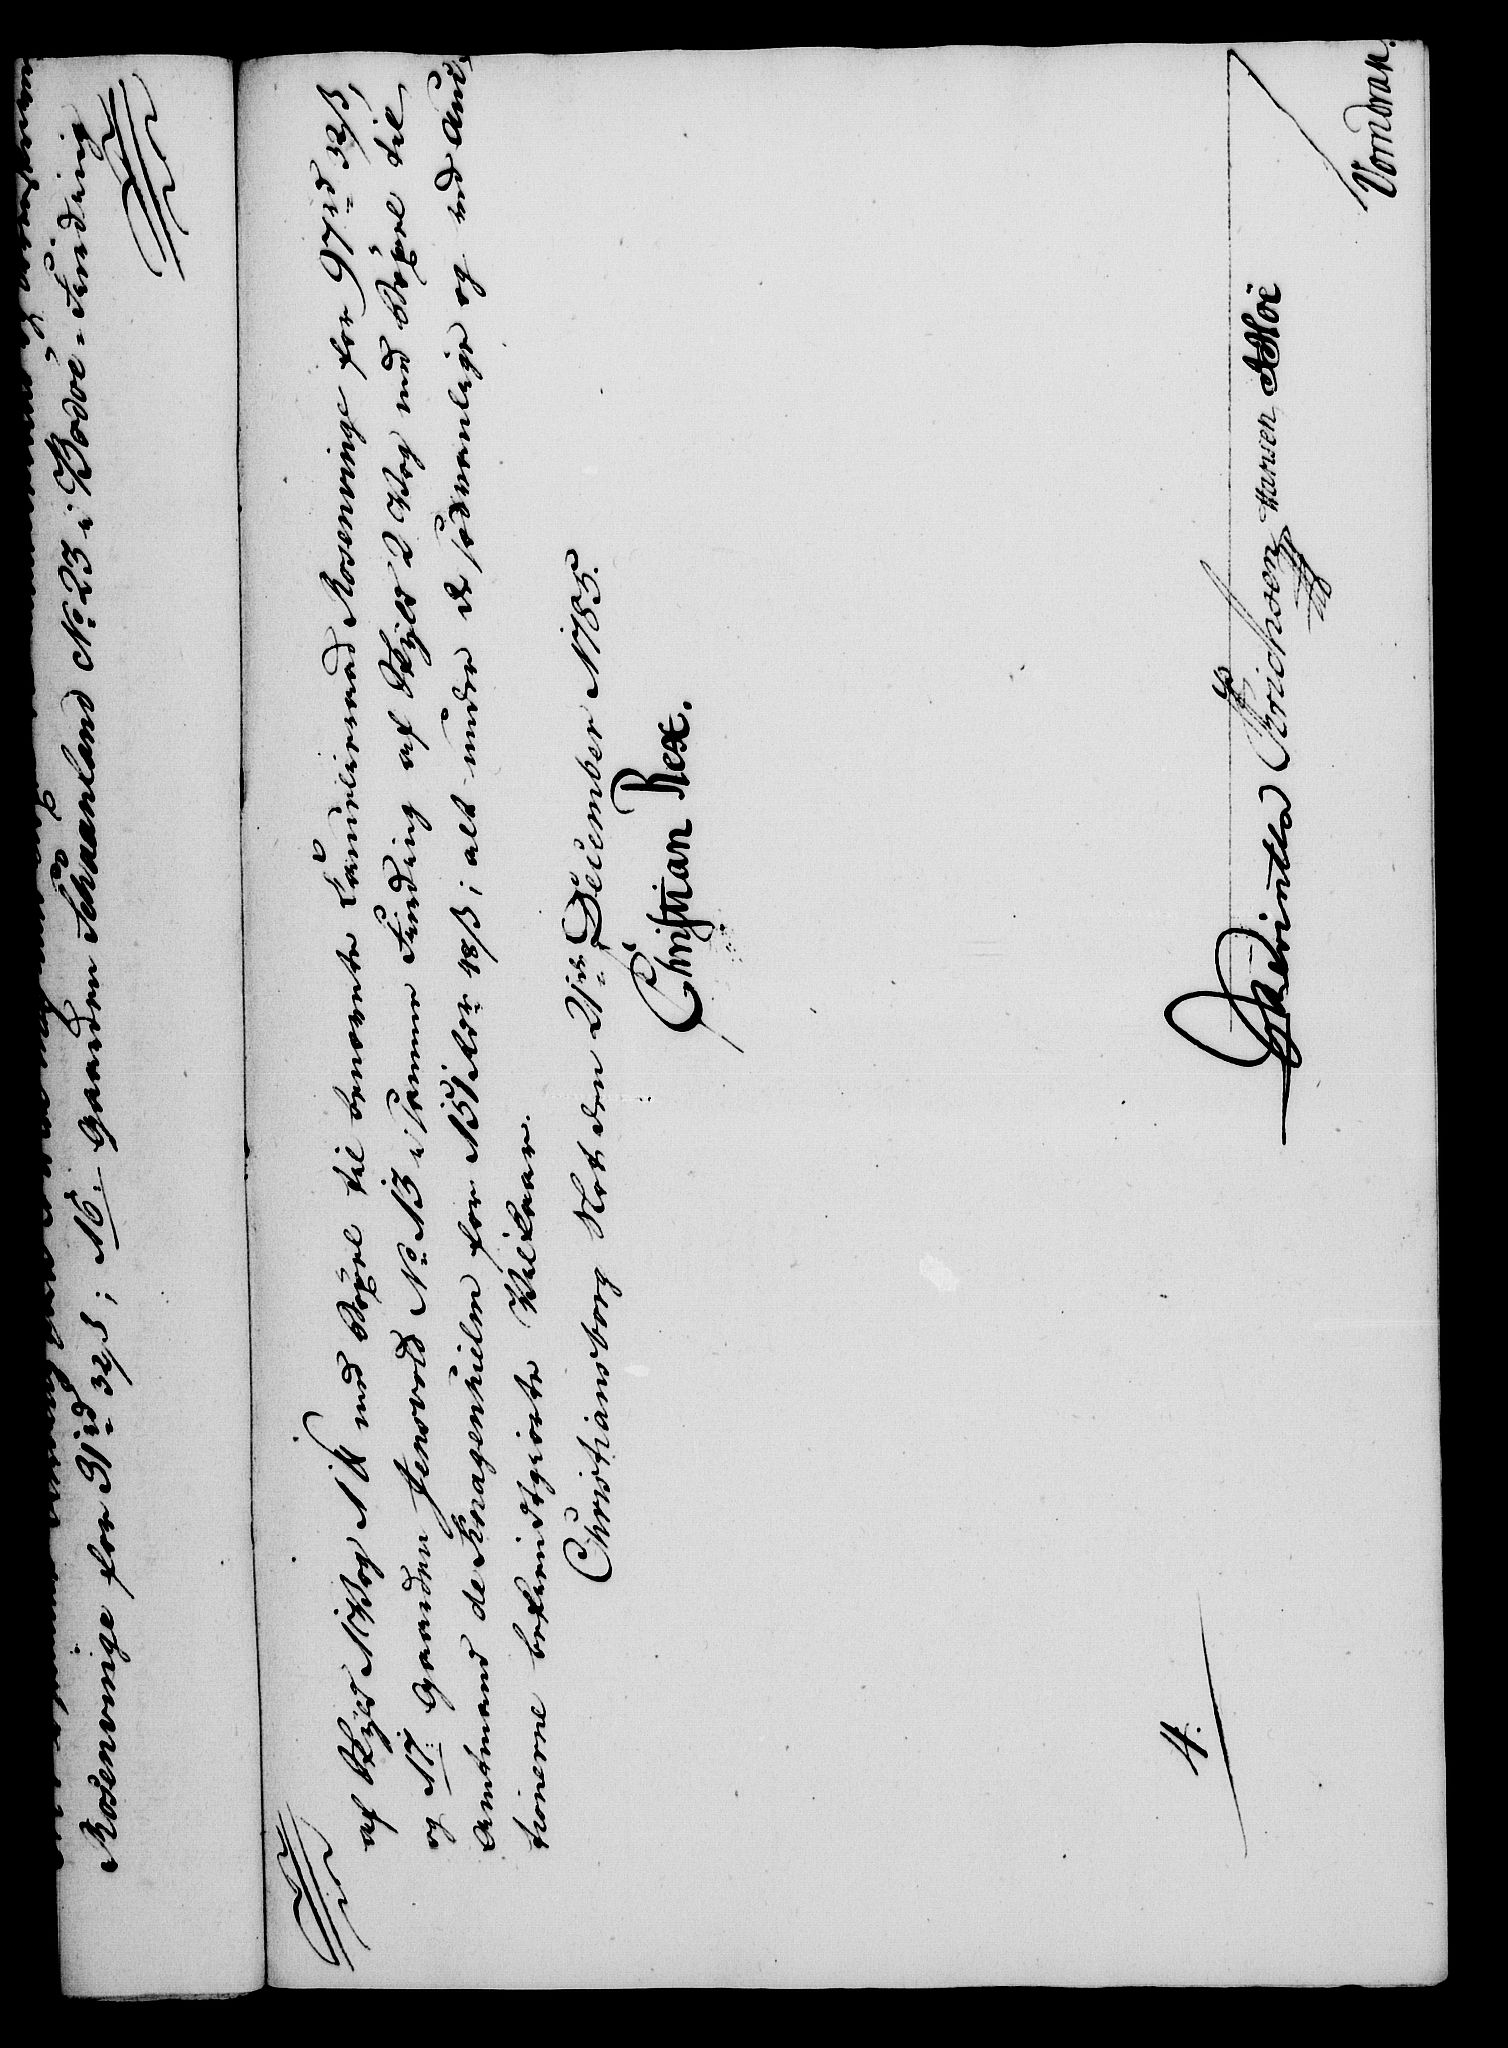 Rosenvinge for 31 rd 32 s; 16. Gaarden Schaanland No 23 i Bodöe-Finding
af Skyld 1 Vog 1 ℔ med Böxel til benævnte Cancelieraad Rosenvinge for 97 rd 32 s,
og 17. Gaarden Jensvold No 13 i samme Finding af Skyld 2 Vog med Böxel til
Amtmand de Knagenhielm for 151 Rdr 48 s; alt under de sædvanlige og ved Auc-
tionerne bekiendtgiorte Vilkaar.
Christiansborg Slot den 21de December 1785.
Christian Rex.
GAEvinth Eridhsen Hansen AHoë
Vorndran.
4.